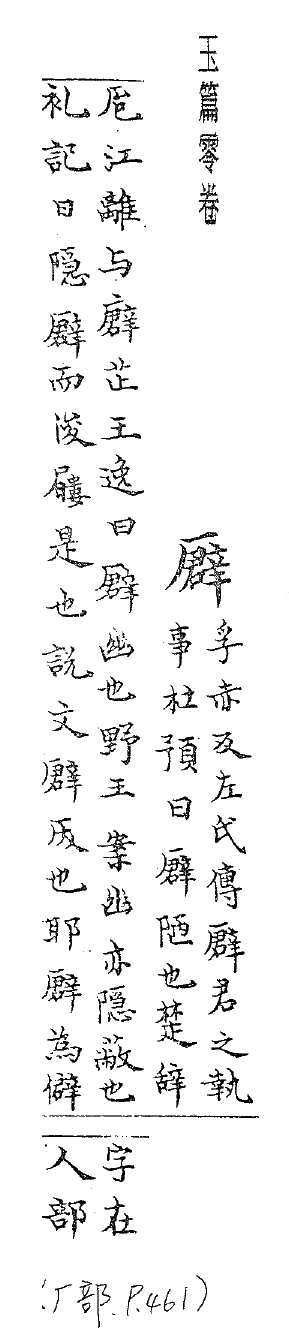 玉篇零卷
厞
孚赤反左氏傳厞君之執
事杜預曰厞陋也楚辞
扈江離与廦芷王逸曰廦幽也野王案幽亦隠蔽也
礼記曰隠厞而後屨是也説文厞仄也耶厞為僻
字在
人部
(厂部.P.461)